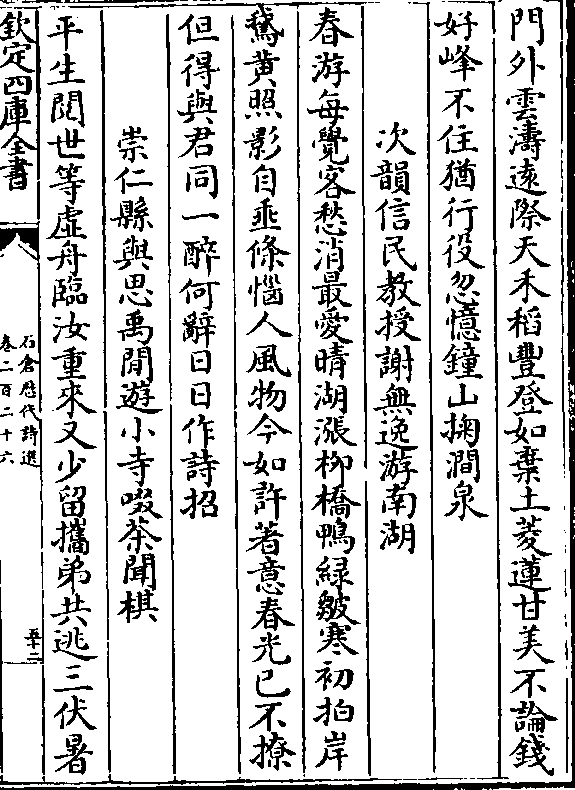 門外雲濤遠際天禾稻豐登如棄土菱蓮甘美不論錢
好峰不住猶行役忽憶鐘山掬澗泉
次韻信民教授謝無逸游南湖
春游每覺客愁消最愛晴湖漲柳橋鴨緑皺寒初拍岸
鵞黄照影自垂條惱人風物今如許著意春光已不撩
但得與君同一醉何辭日日作詩招
崇仁縣與思禹閒遊小寺啜茶聞棋
平生閲世等虛舟臨汝重來又少留攜弟共逃三伏暑
欽定四庫全書
石倉歷代詩選
卷二百二十六
五十二